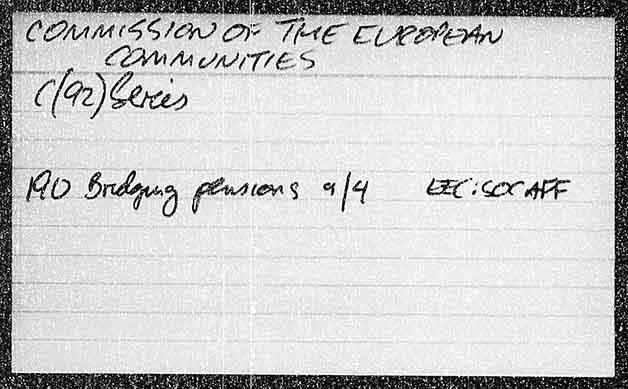 COMMISSION OF THE EUROPEAN
COMMUNITIES
C(92) Series
190 Bridging pensions 9/4 EEC:SOC AFF